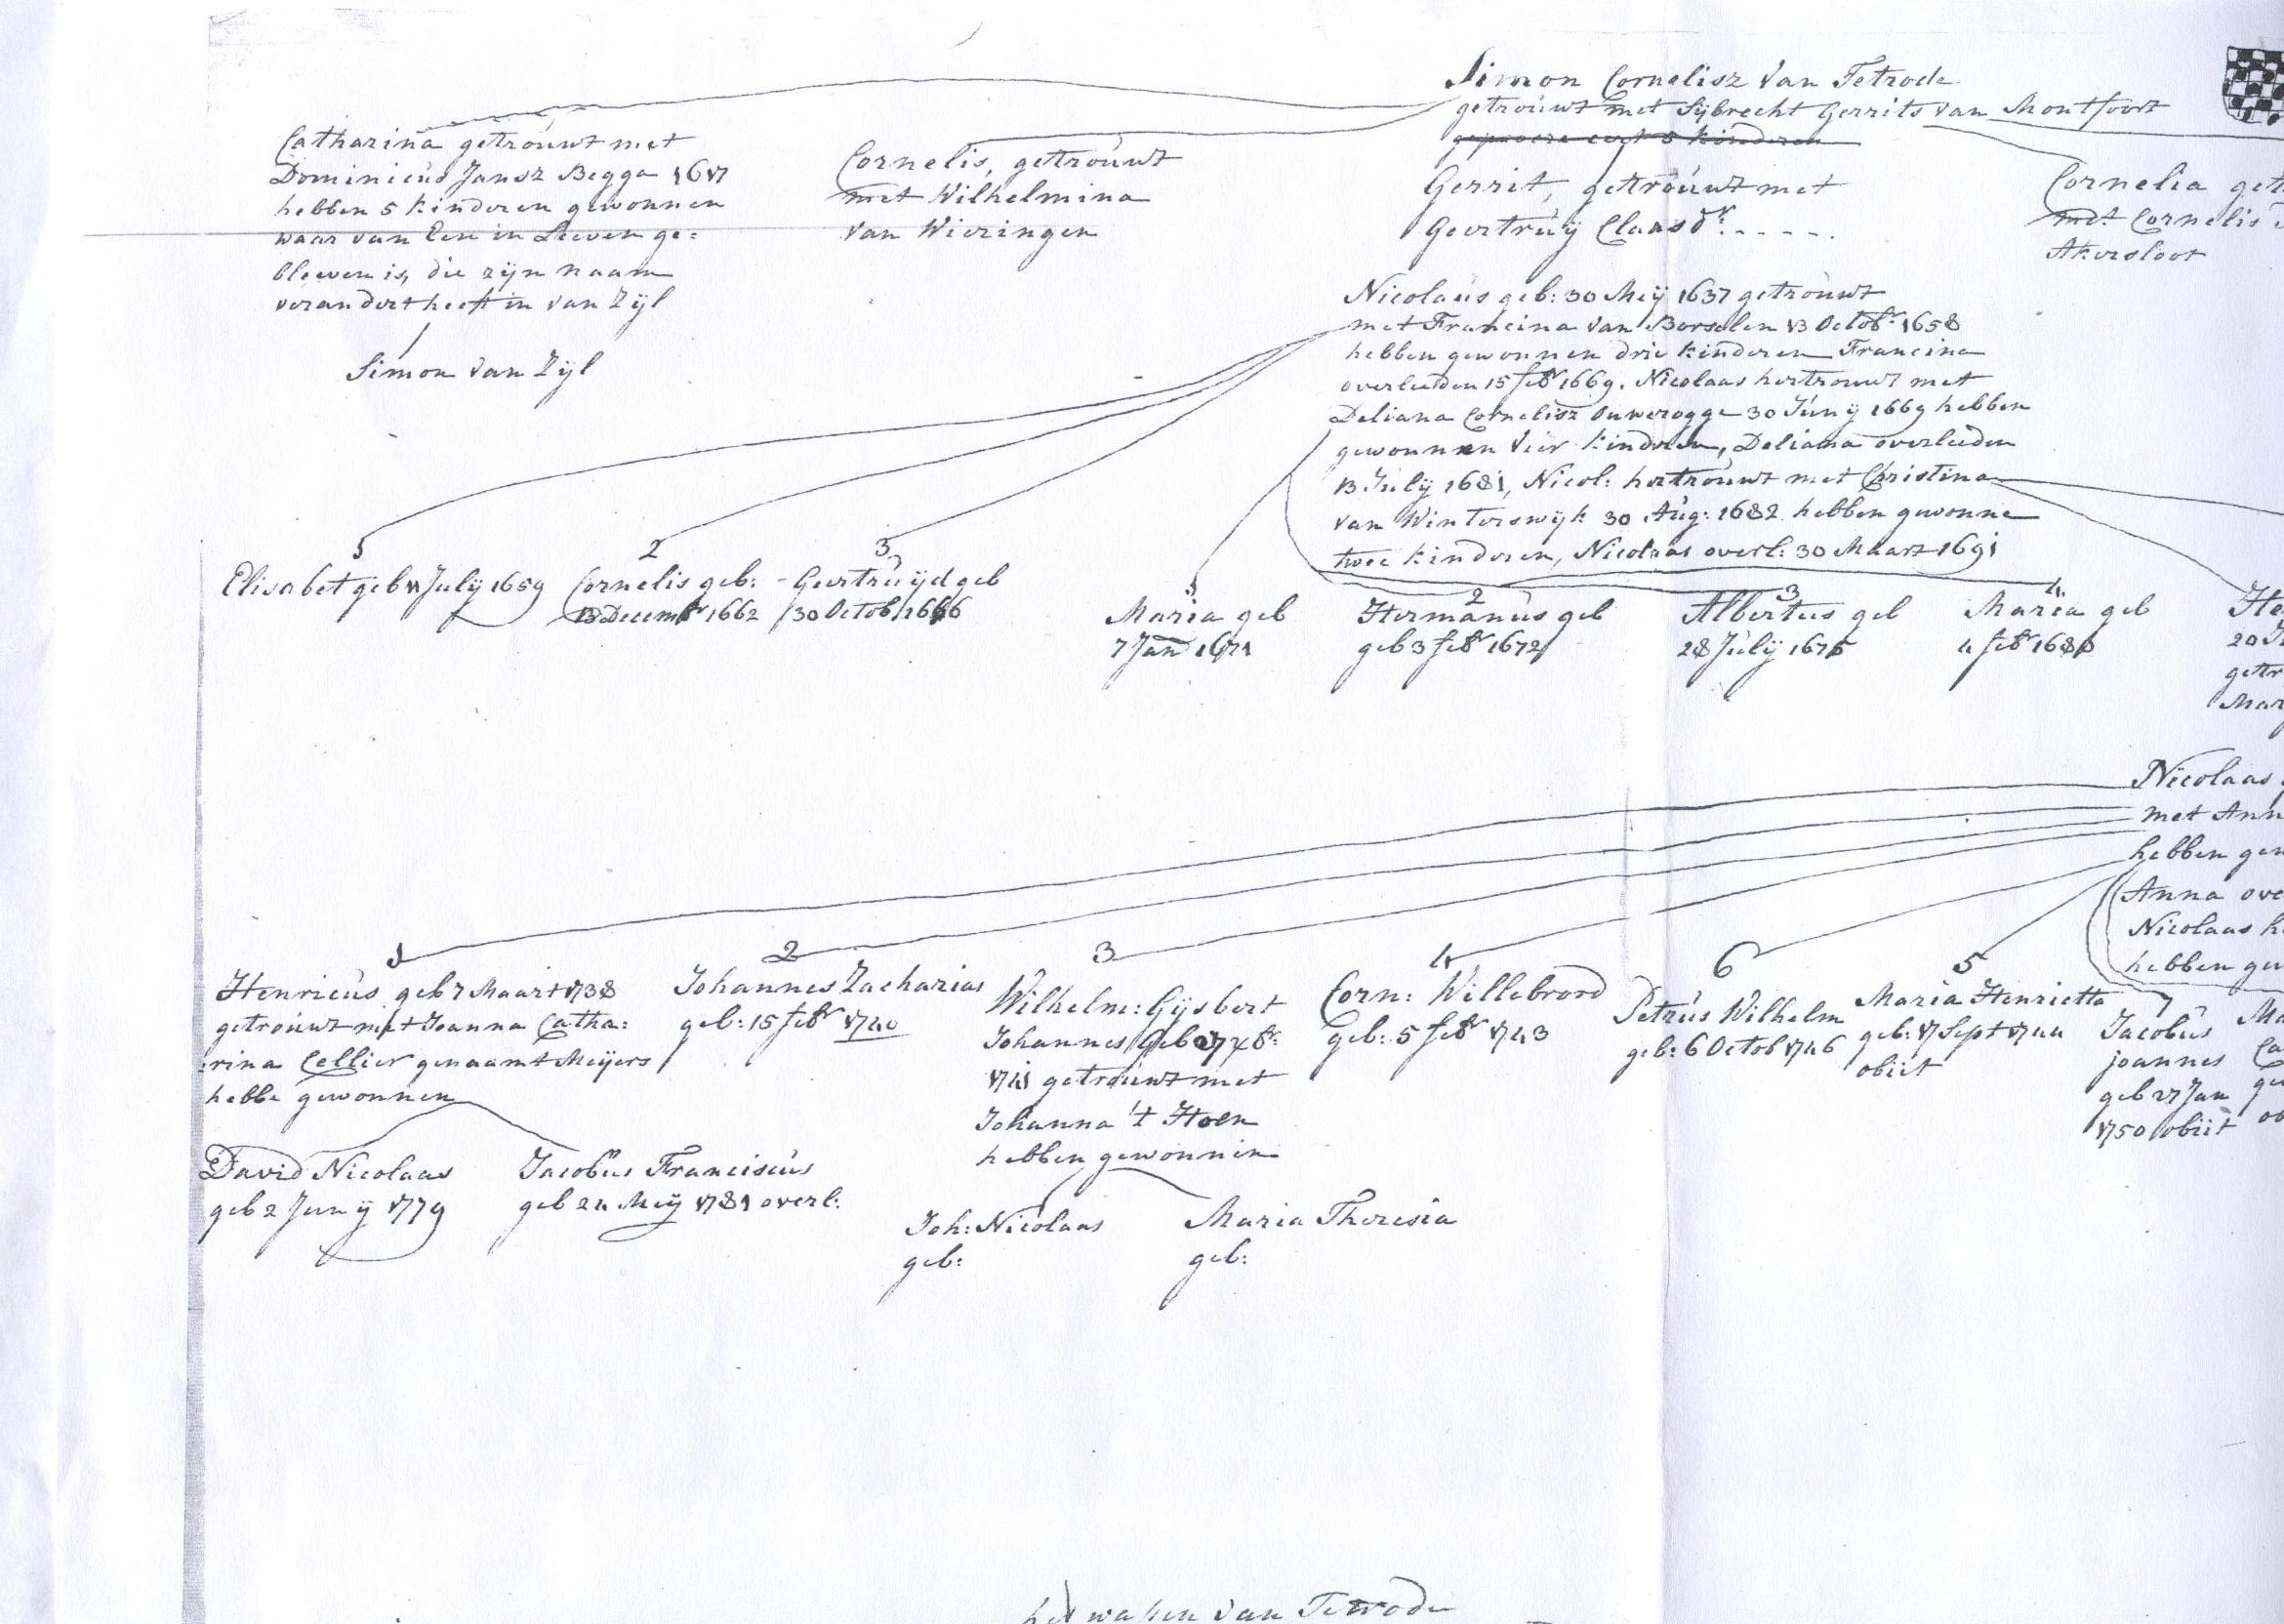 Simon Cornelisz Van Tetrode
getrouwt met Sijbrecht Gerrits van Montfoort
kinderen
Catharina getrouwt met
Dominicus Jansz Begga 1617
hebben 5 kinderen gewonnen
waar van Een in Leeven ge=
bleeven is, die zijn naam
verandert heeft in van Zijl
Simon Van Zijl
Cornelis, getrouwt
met Wilhelmina
van Wieringen
Gerrit, getrouwt met
Geertruij Claasdr: - - - - -
Cornelia get
met Cornelis
Akersloot
Nicolaus geb: 30 Meij 1637 getrouwt
met Francina van Borselen 13 Octobr: 1658
hebben gewonnen drie kinderen Francina
overleeden 15 febr 1669. Nicolaas hertrouwt met
Deliana Cornelisz Ouwerogge 30 Junij 1669 hebben
gewonnen Vier kinderen, Deliana overleeden
13 Julij 1681, Nicol: hertrouwt met Christina
van Winterswijk 30 Aug: 1682 hebben gewonne
twee kinderen, Nicolaas overl: 30 Maart 1691
1 2 3
Elisabet geb 11 Julij 1659
Cornelis geb:
13 Decembr 1662
Geertruijd geb
30 Octob 1666
1 2 3 4
Maria geb
7 Jan 1671
Hermanus geb
geb 3 febr 1672
Albertus geb
28 Julij 1675
Maria geb
4 febr 1680
He
20 J
getr
Mar
Nicolaas
met Ann
hebben gew
Anna ove
Nicolaas h
hebben gew
1 2 3 4 6 5 7
Henricus geb 7 Maart 1738
getrouwt met Joanna Catha:
:rina Cellier genaamt Meijers
hebbe gewonnen
Johannes Zacharias
geb: 15 febr 1740
Wilhelm: Gijsbert
Johannes Geb 27 x8r:
1741 getrouwt met
Johanna 't Hoen
hebben gewonnen
Corn: Willebrord
geb: 5 febr 1743
Petrus Wilhelm
geb: 6 Octob 1746
Maria Henrietta
geb: 17 Sept 1744
obiit
Jacobus
joannes
geb 27 Jan
1750 obiit
Ma
Ca
ge
ob
David Nicolaas
geb 2 Junij 1779
Jacobus Franciscus
geb 24 Meij 1781 overl:
Joh: Nicolaas
geb:
Maria Theresia
geb:
het wapen van Tetrode